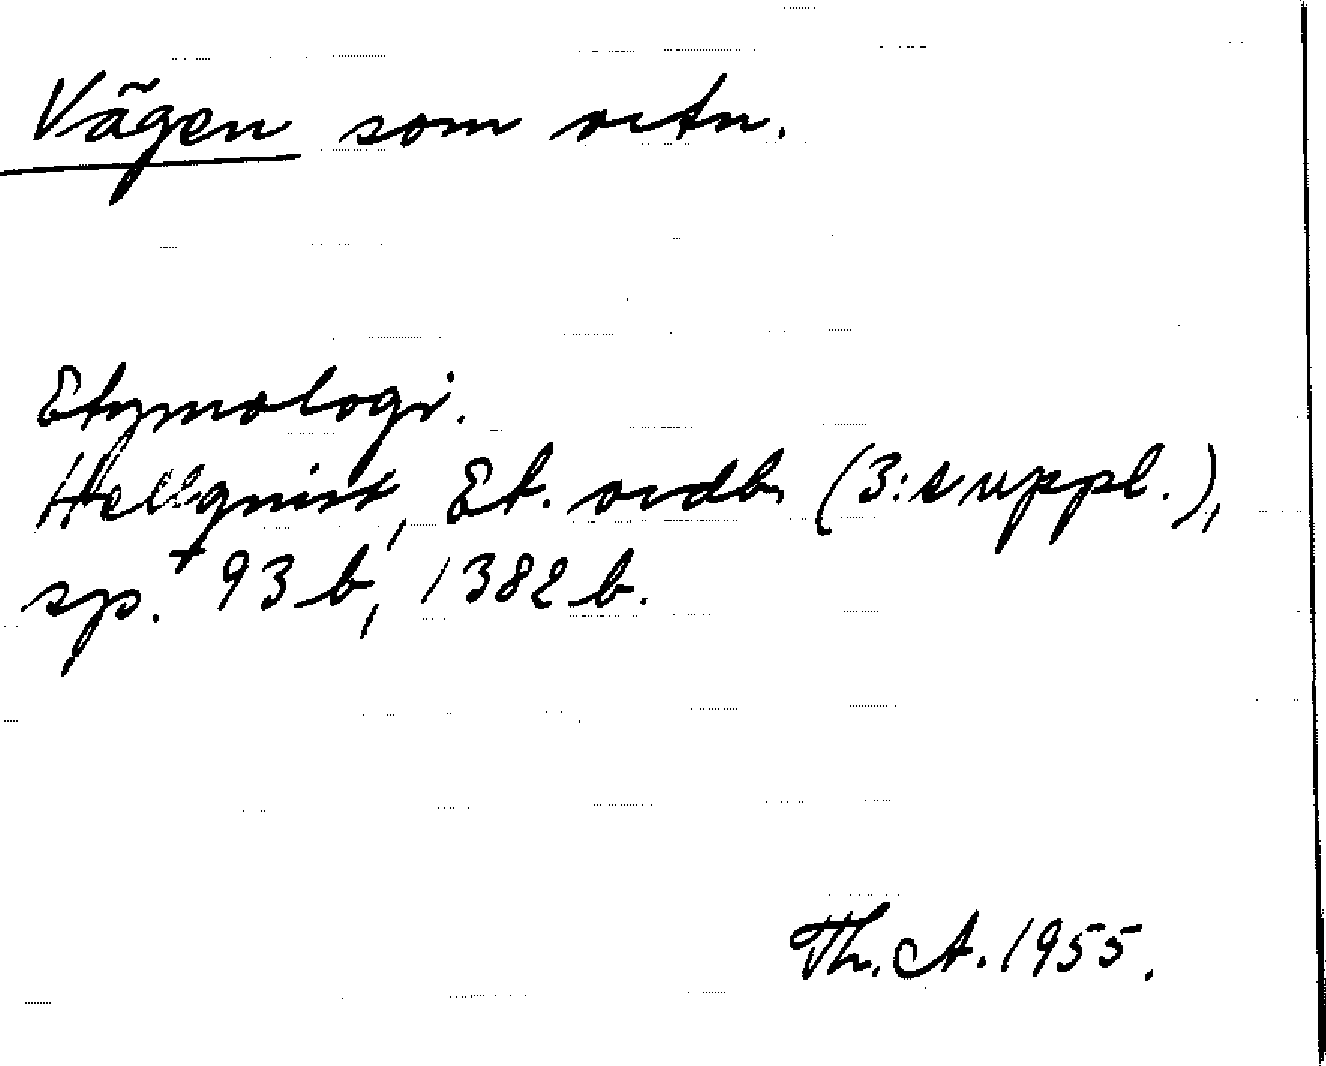 Vägen som ortn.
Etymologi.
Hellquist, Et. ordb. (3:e uppl.),
sp. † 93 b, 1382 b.
Th. A. 1955.